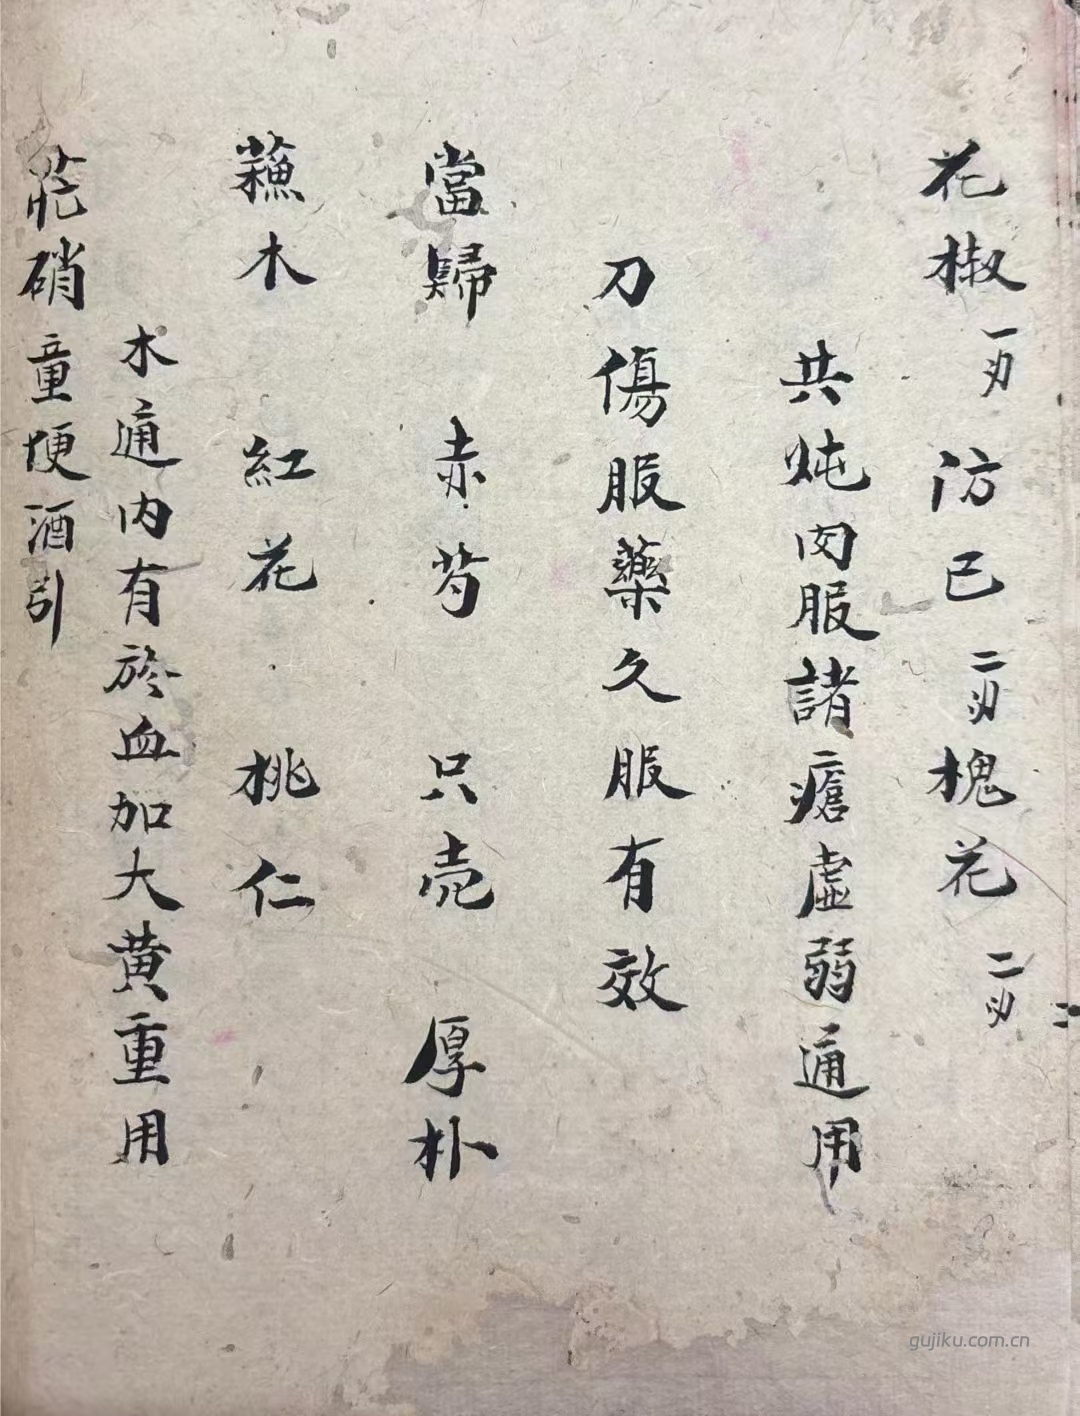 花椒一刃 汸己二刃 槐花二刃
共炖肉服諸瘡虛弱通用
刀傷服藥久服有效
當歸 赤芍 只壳 厚朴
蘓木 紅花 桃仁
木通内有於血加大黄重用
芒硝童便酒引
gujiku.com.cn